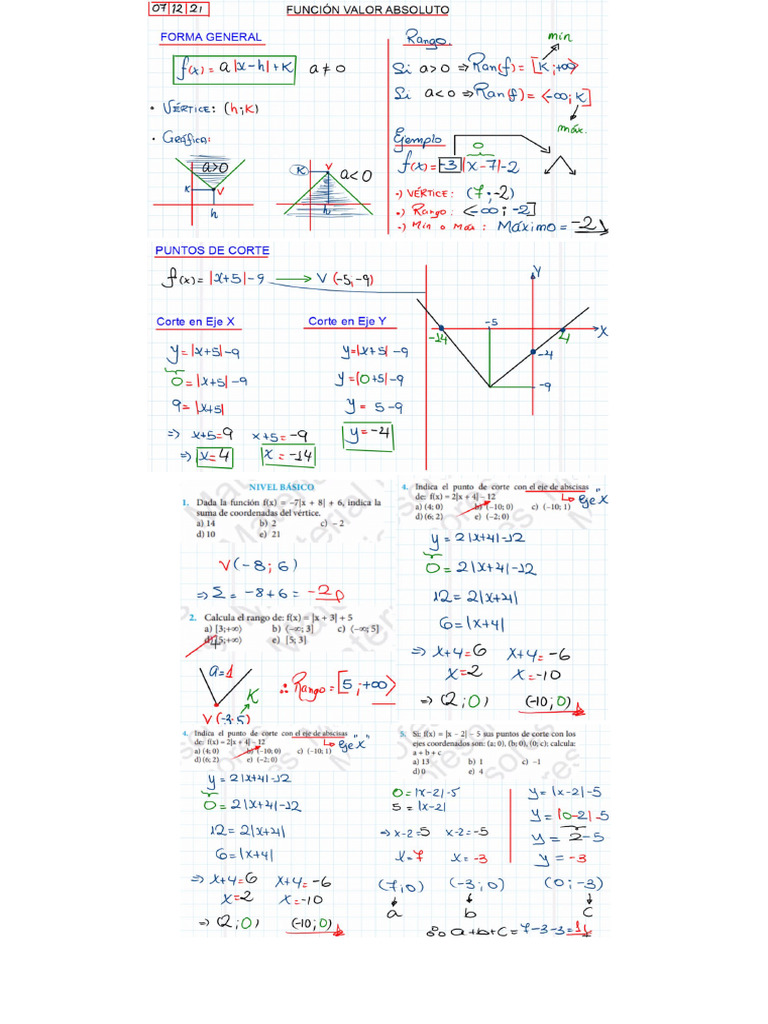 07 12 21
FUNCIÓN VALOR ABSOLUTO
FORMA GENERAL
f(x) = a|x-h|+K a ≠ 0
• VÉRTICE: (h;K)
• Gráfica:
a>0
K
V
h
K
V
a<0
h
Rango.
mín
Si a>0 ⇒ Ran(f) = [K;+∞⟩
Si a<0 ⇒ Ran(f) = ⟨-∞;K]
máx.
Ejemplo
0
f(x) = -3|x-7|-2
•) VÉRTICE: (7;-2)
•) Rango: ⟨-∞;-2]
•) Mín o Máx: Máximo = -2
PUNTOS DE CORTE
f(x) = |x+5|-9 → V (-5;-9)
Corte en Eje X
y = |x+5|-9
0 = |x+5|-9
9 = |x+5|
⇒ x+5=9 x+5=-9
⇒ x=4 x=-14
Corte en Eje Y
y=|x+5|-9
y=|0+5|-9
y = 5-9
y=-4
Y
-5
X
-14
4
-4
-9
NIVEL BÁSICO
1. Dada la función f(x) = –7|x + 8| + 6, indica la
suma de coordenadas del vértice.
a) 14 b) 2 c) – 2
d) 10 e) 21
V(-8;6)
⇒ Σ = -8+6 = -2
2. Calcula el rango de: f(x) = |x + 3| + 5
a) [3;+∞) b) ⟨–∞; 3] c) ⟨–∞; 5]
d) [5;+∞) e) [5; 3]
a=1
K
V(-3;5)
∴ Rango = [5;+∞⟩
4. Indica el punto de corte con el eje de abscisas
de: f(x) = 2|x + 4| – 12
"Eje X"
a) (4; 0) b) (–10; 0) c) (–10; 1)
d) (6; 2) e) (–2; 0)
y = 2|x+4|-12
0 = 2|x+4|-12
12 = 2|x+4|
6=|x+4|
⇒ x+4=6 x+4=-6
x=2 x=-10
⇒ (2;0) (-10;0)
4. Indica el punto de corte con el eje de abscisas
de: f(x) = 2|x + 4| – 12
"Eje X"
a) (4; 0) b) (–10; 0) c) (–10; 1)
d) (6; 2) e) (–2; 0)
y = 2|x+4|-12
0 = 2|x+4|-12
12 = 2|x+4|
6=|x+4|
⇒ x+4=6 x+4=-6
x=2 x=-10
⇒ (2;0) (-10;0)
5. Si: f(x) = |x – 2| – 5 sus puntos de corte con los
ejes coordenados son: (a; 0), (b; 0), (0; c); calcula:
a + b + c.
a) 13 b) 1 c) –1
d) 0 e) 4
0=|x-2|-5
5=|x-2|
⇒ x-2=5 x-2=-5
x=7 x=-3
y=|x-2|-5
y=|0-2|-5
y = 2-5
y = -3
(7;0) (-3;0) (0;-3)
a b c
∴ a+b+c=7-3-3=1